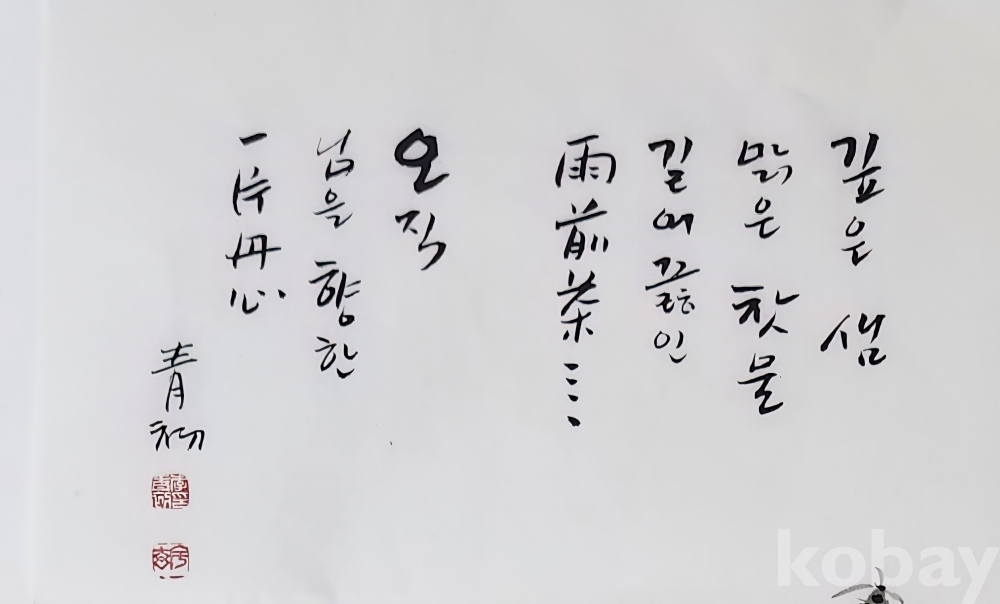 깊은 샘
맑은 찻물
길어 끓인
雨前茶...
오직
님을 향한
一片丹心
青初
kobay